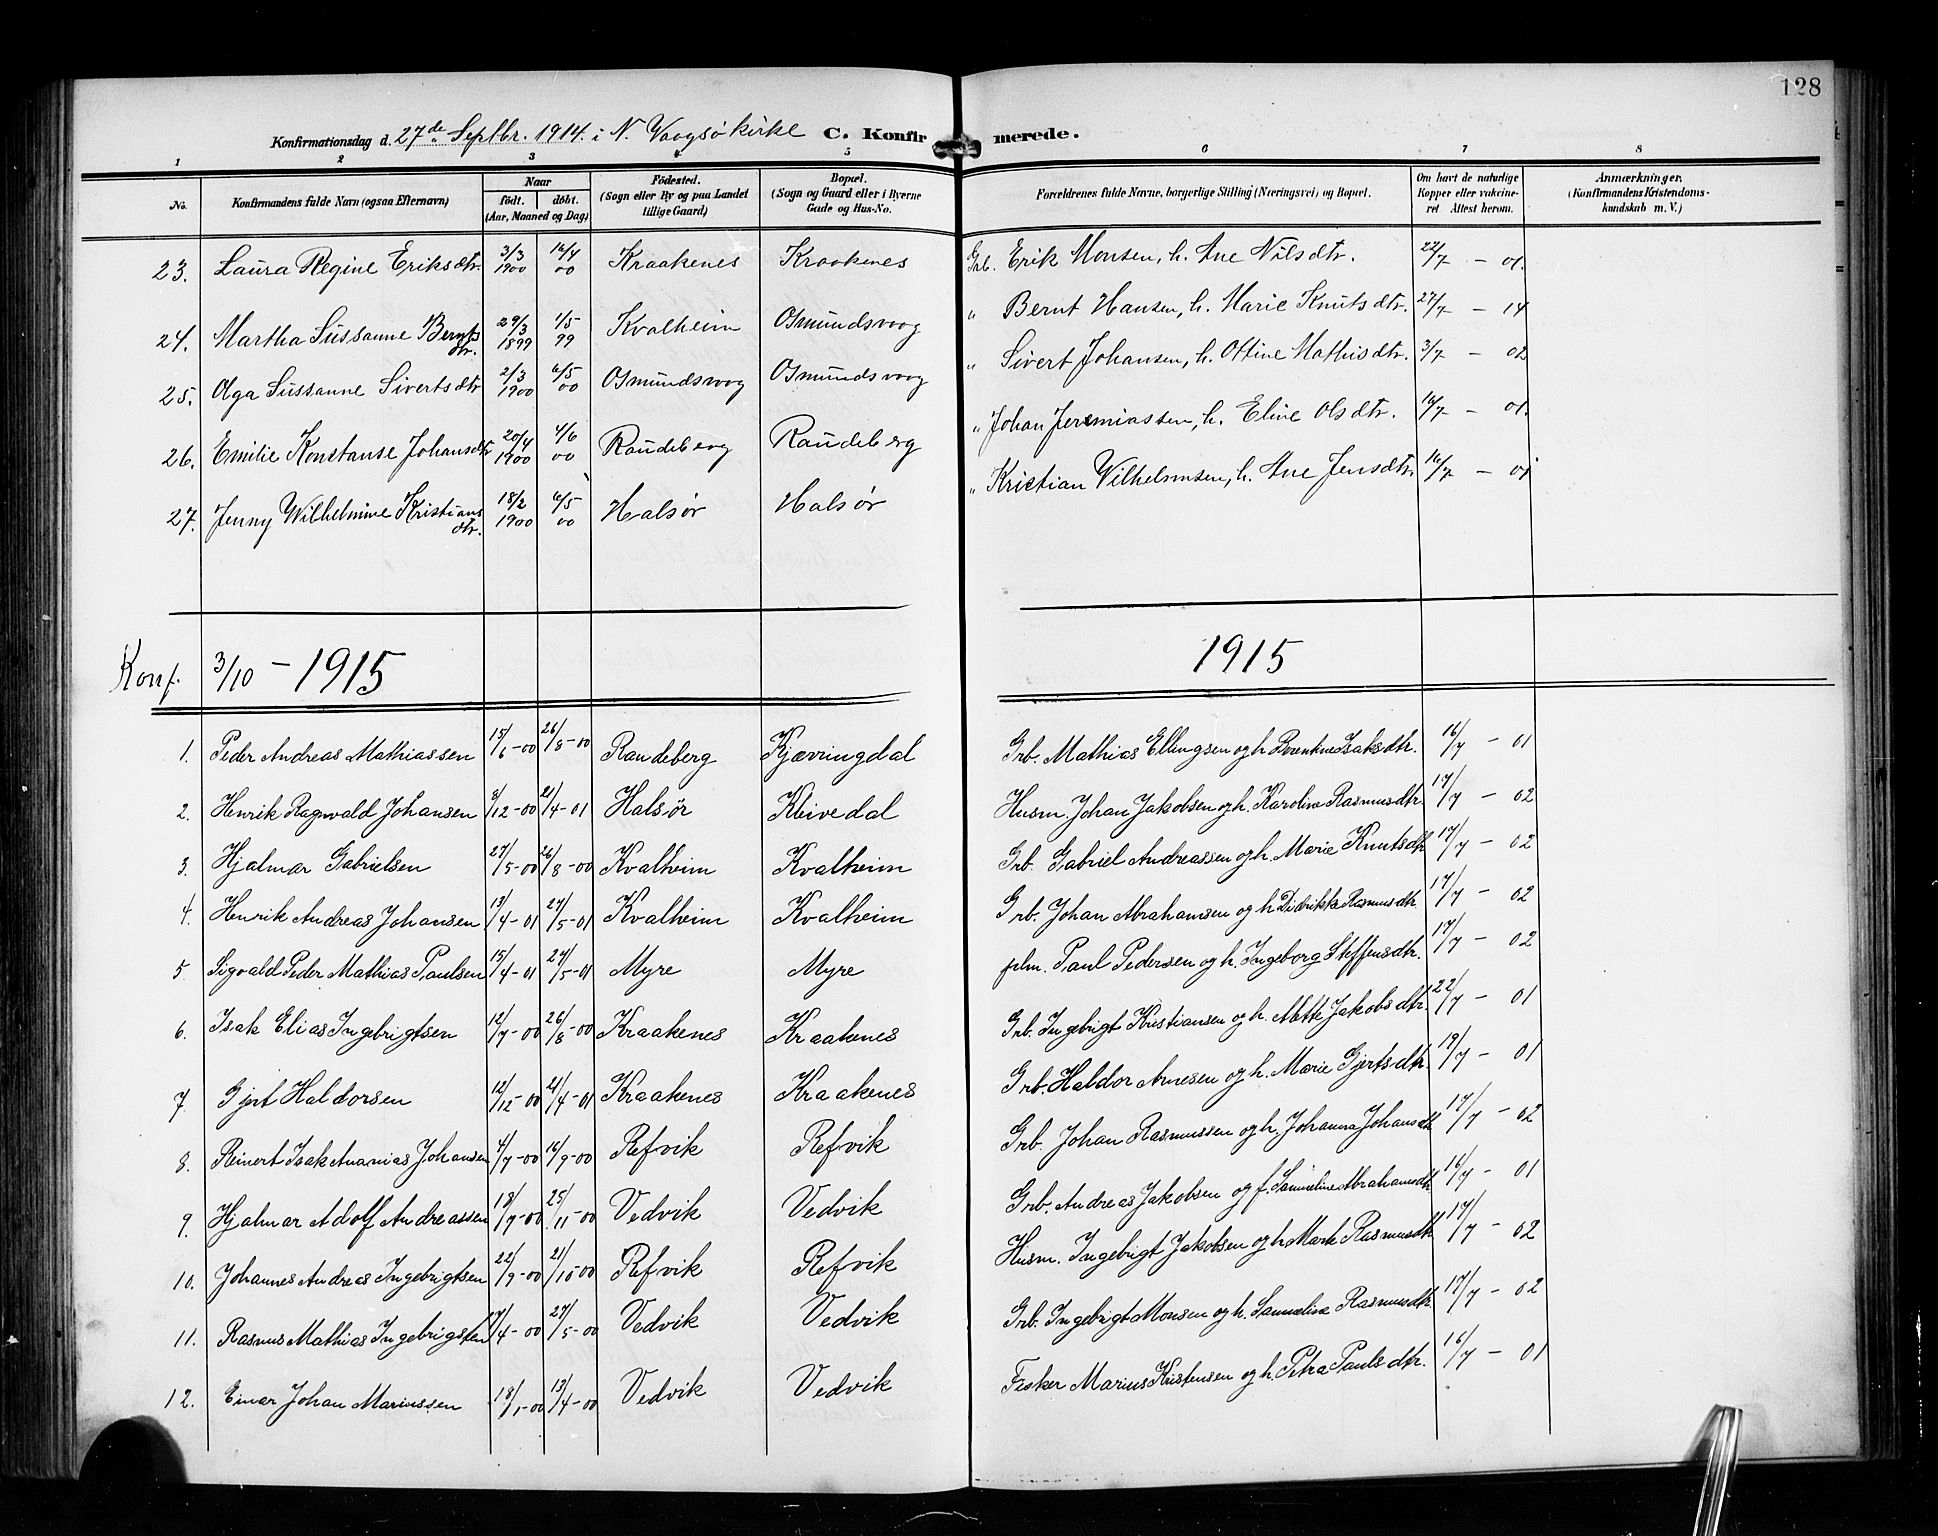 128
Konfirmationsdag d. 27de Septbr. 1914. i N. Vaagsö kirke C. Konfirmerede.
1 2 3 4 5 6 7 8
No. Konfirmandens fulde Navn (ogsaa Efternavn) Naar födt. döbt. (Aar, Maaned og Dag) Födested. (Sogn eller By og paa Landet tillige Gaard) Bopæl. (Sogn og Gaard eller i Byerne Gade og Hus-No. Forældrenes fulde Navne, borgerlige Stilling (Næringsvei) og Bopæl. Om havt de naturlige Kopper eller vakcineret Attest herom. Anmærkninger. (Konfirmandens Kristendomskundskab m. V.)
23. Laura Regine Eriksdtr. 3/3 1900 16/4 00 Kraakenes Kraakenes Grb. Erik Monsen, h. Ane Nilsdtr. 22/7 - 01.
24. Martha Sussanne Berntsdtr. 29/3 1899 1/5 99 Kvalheim Osmundsvaag " Bernt Hansen, h. Marie Knutsdtr. 27/7 - 14
25. Olga Sussanne Sivertsdtr 2/3 1900 6/5 00 Osmundsvaag Osmundsvaag " Sivert Johansen, h. Ottine Mathisdtr. 3/7 - 02
26. Emilie Konstanse Johansdtr 20/4 1900 4/6 00 Raudeberg Raudeberg " Johan Jeremiassen, h. Eline Olsdtr. 16/7 - 01.
27. Jenny Wilhelmine Kristiansdtr. 18/2 1900 6/5 00 Halsør Halsør " Kristian Wilhelmsen, h. Ane Jensdtr. 16/7 - 01
Konf. 3/10 - 1915 1915
1. Peder Andreas Mathiassen 15/6-00 26/8-00 Raudeberg Kjærringdal Grb. Mathias Ellingsen og h. Isaksdtr. 16/7 - 01
2. Henrik Ragnvald Johansen /12-00 21/4-01 Halsør Kleivedal Husm. Johan Jakobsen og h. Karolina Rasmusdtr. 17/7 - 02
3. Hjalmar Gabrielsen 27/5-00 26/8-00 Kvalheim Kvalheim Grb. Gabriel Andreassen og h. Marie Knutsdtr 17/7 - 02
4. Henrik Andreas Johansen 13/4-01 27/5-01 Kvalheim Kvalheim Grb. Johan Abrahamsen og h. Didrikke Rasmusdtr. 17/7 - 02
5 Sigvald Peder Mathias Paulsen 15/4-01 27/5-01 Myre Myre plm. Paul Pedersen og h. Ingeborg Steffensdtr. 17/7 - 02
6. Isak Elias Ingebrigtsen 12/7-00 26/8-00 Kraakenes Kraakenes Grb. Ingebrigt Kristiansen og h. Mette Jakobsdtr. 22/7 - 01
7 Gjert Haldorsen 12/12-00 21/4-01 Kraakenes Kraakenes Grb. Haldor Arnesen og h. Marie Gjertsdtr. 19/7 - 01
8. Reinert Isak Ananias Johansen 4/7-00 16/9-00 Refvik Refvik Grb. Johan Rasmussen og h. Johanna Johansdtr 17/7 - 02
9. Hjalmar Adolf Andreassen 18/9-00 25/11-00 Vedvik Vedvik Grb. Andreas Jakobsen og f. Samueline Abrahamsdtr 16/7 - 01
10. Johannes Andreas Ingebrigtsen 22/9-00 21/10-00 Refvik Refvik Husm. Ingebrigt Jakobsen og h. Rasmusdtr 17/7 - 02
11. Rasmus Mathias Ingebrigsten 17/4-00 27/5-00 Vedvik Vedvik Grb. Ingebrigt Monsen og h. Samueline Rasmusdtr. 17/7 - 02
12. Einar Johan Mariussen 18/1-00 13/4-00 Vedvik Vedvik Fisker Marius Kristensen og h. Petra Paulsdtr. 16/7 - 01